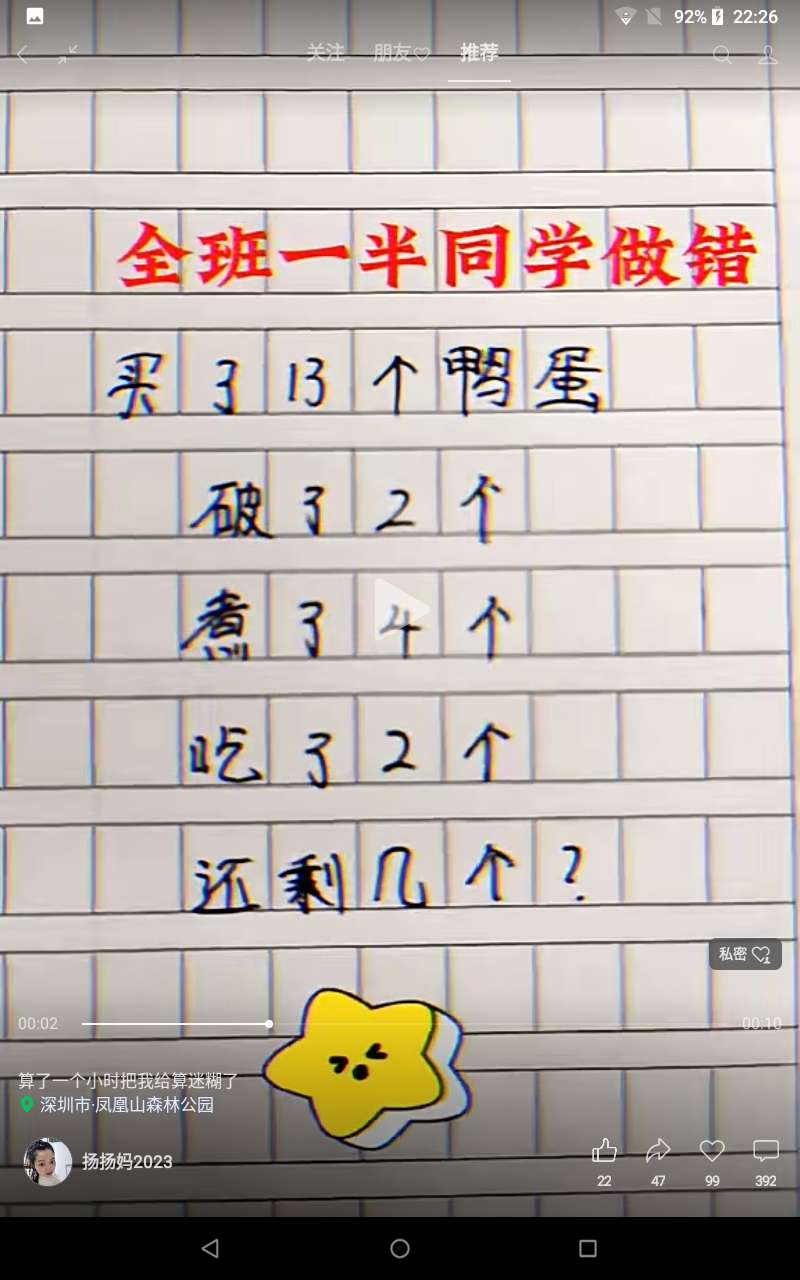 92% 22:26
关注 朋友 推荐
全班一半同学做错
买了13个鸭蛋
破了2个
煮了4个
吃了2个
还剩几个?
私密
00:02 00:10
算了一个小时把我给算迷糊了
深圳市·凤凰山森林公园
扬扬妈2023
22 47 99 392